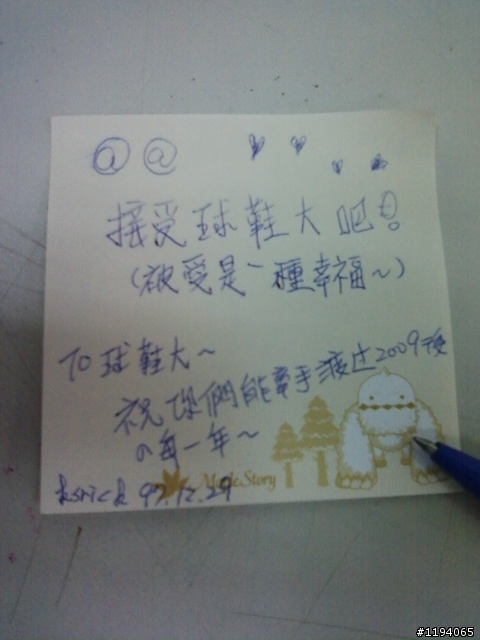 @ @
接受球鞋大吧!
(被愛是一種幸福~)
To 球鞋大~
祝你們能牽手渡过2009後
の每一年~
97.12.29
Maple Story
#1194065